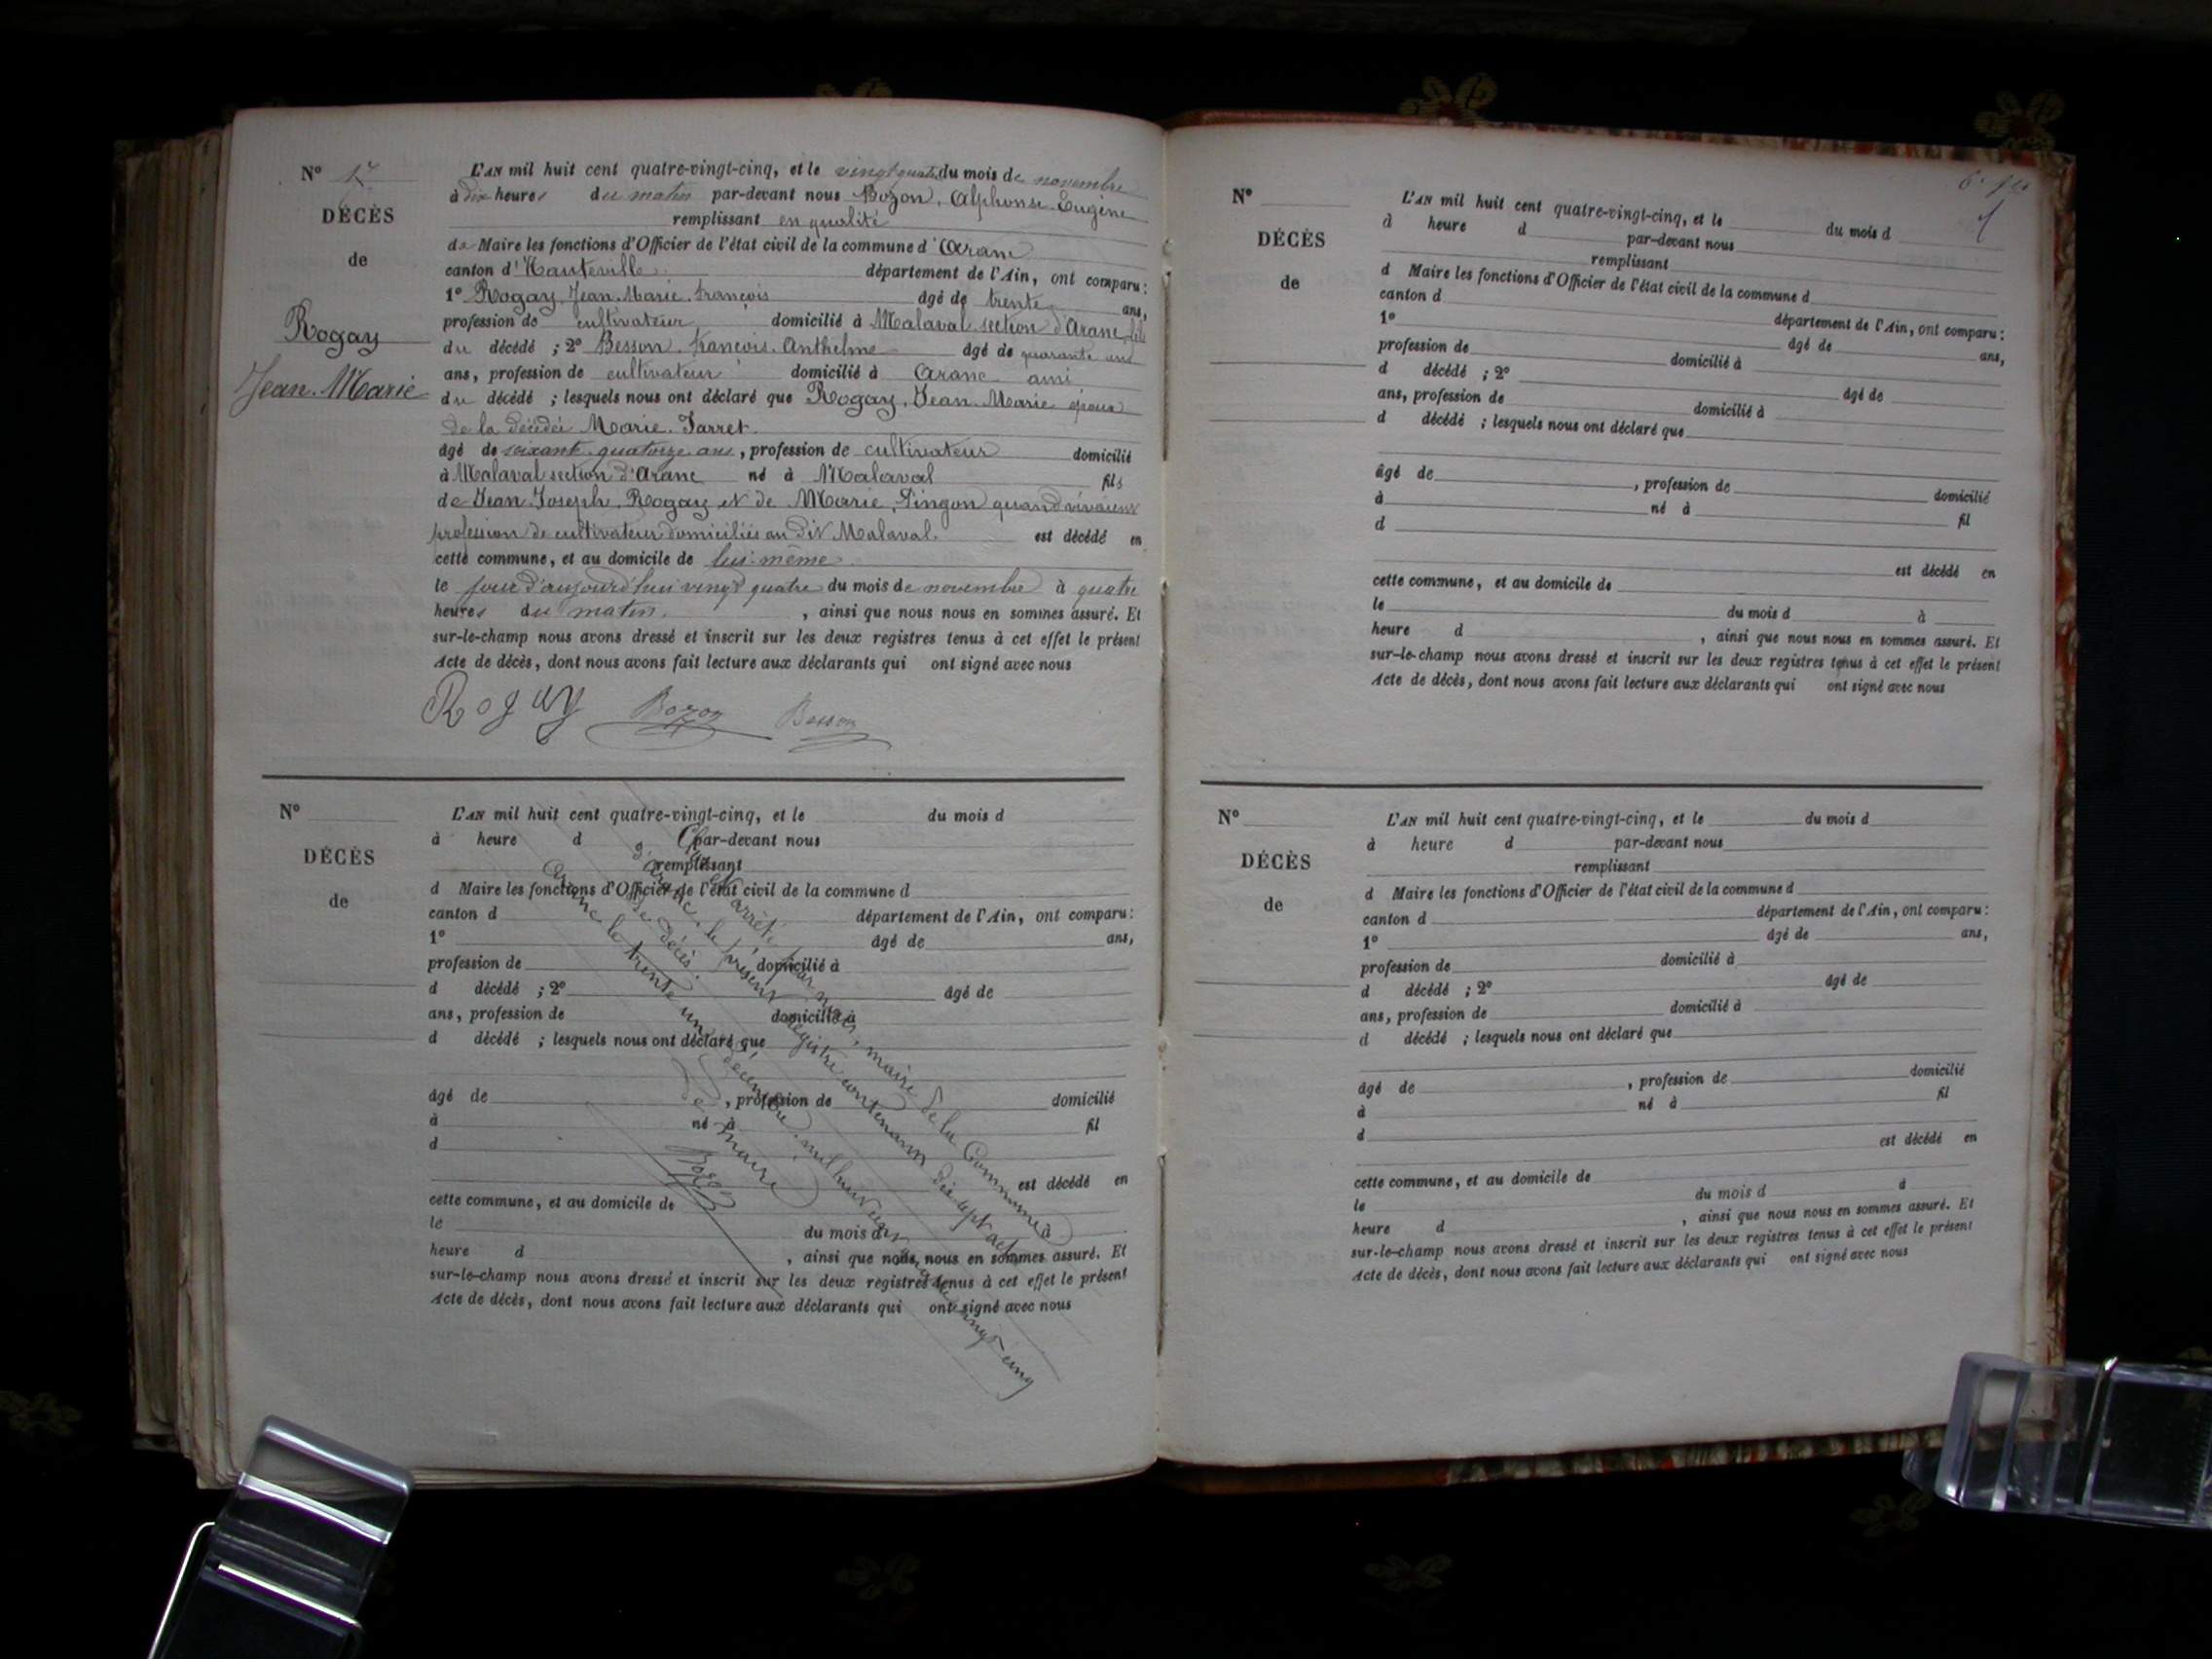 Nº 17
DÉCÈS
de
Rogay
Jean-Marie
L'AN mil huit cent quatre-vingt-cinq, et le vingt quatre du mois de novembre
à dix heures du matin par-devant nous Bozon, Alphonse Eugène
remplissant en qualité
de Maire les fonctions d'Officier de l'état civil de la commune d'Aranc
canton d'Hauteville département de l'Ain, ont comparu:
1º Rogay, Jean-Marie, françois âgé de trente ans,
profession de cultivateur domicilié à Malaval section d'Aranc, fils
du décédé ; 2º Besson, francois Anthelme âgé de quarante un
ans, profession de cultivateur domicilié à Aranc ami
du décédé ; lesquels nous ont déclaré que Rogay, Jean-Marie époux
de la décédée Marie Jarret
âgé de soixante quatorze ans, profession de cultivateur domicilié
à Malaval section d'Aranc né à Malaval fils
de Jean-Joseph, Rogay et de Marie, Pingon quand vivaient
profession de cultivateur domiciliés au dit Malaval. est décédé en
cette commune, et au domicile de lui-même
le jour d'aujourd'hui vingt quatre du mois de novembre à quatre
heures du matin, ainsi que nous nous en sommes assuré. Et
sur-le-champ nous avons dressé et inscrit sur les deux registres tenus à cet effet le présent
Acte de décès, dont nous avons fait lecture aux déclarants qui ont signé avec nous
Rogay Bozon Besson
Nº
DÉCÈS
de
L'AN mil huit cent quatre-vingt-cinq, et le du mois d
à heure d par-devant nous
remplissant
d Maire les fonctions d'Officier de l'état civil de la commune d
canton d département de l'Ain, ont comparu:
1º âgé de ans,
profession de domicilié à
d décédé ; 2º âgé de
ans, profession de domicilié à
d décédé ; lesquels nous ont déclaré que
âgé de , profession de domicilié
à né à fil
d
est décédé en
cette commune, et au domicile de
le du mois d à
heure d , ainsi que nous nous en sommes assuré. Et
sur-le-champ nous avons dressé et inscrit sur les deux registres tenus à cet effet le présent
Acte de décès, dont nous avons fait lecture aux déclarants qui ont signé avec nous
Clos et arrêté par nous, maire de la Commune
d'Aranc, le présent registre contenant dix sept actes
de décès.
Aranc le trente un décembre mil huit cent quatre vingt cinq
Le Maire
Bozon
Nº
DÉCÈS
de
L'AN mil huit cent quatre-vingt-cinq, et le du mois d
à heure d par-devant nous
remplissant
d Maire les fonctions d'Officier de l'état civil de la commune d
canton d département de l'Ain, ont comparu:
1º âgé de ans,
profession de domicilié à
d décédé ; 2º âgé de
ans, profession de domicilié à
d décédé ; lesquels nous ont déclaré que
âgé de , profession de domicilié
à né à fil
d
est décédé en
cette commune, et au domicile de
le du mois d à
heure d , ainsi que nous nous en sommes assuré. Et
sur-le-champ nous avons dressé et inscrit sur les deux registres tenus à cet effet le présent
Acte de décès, dont nous avons fait lecture aux déclarants qui ont signé avec nous
Nº
DÉCÈS
de
L'AN mil huit cent quatre-vingt-cinq, et le du mois d
à heure d par-devant nous
remplissant
d Maire les fonctions d'Officier de l'état civil de la commune d
canton d département de l'Ain, ont comparu:
1º âgé de ans,
profession de domicilié à
d décédé ; 2º âgé de
ans, profession de domicilié à
d décédé ; lesquels nous ont déclaré que
âgé de , profession de domicilié
à né à fil
d
est décédé en
cette commune, et au domicile de
le du mois d à
heure d , ainsi que nous nous en sommes assuré. Et
sur-le-champ nous avons dressé et inscrit sur les deux registres tenus à cet effet le présent
Acte de décès, dont nous avons fait lecture aux déclarants qui ont signé avec nous